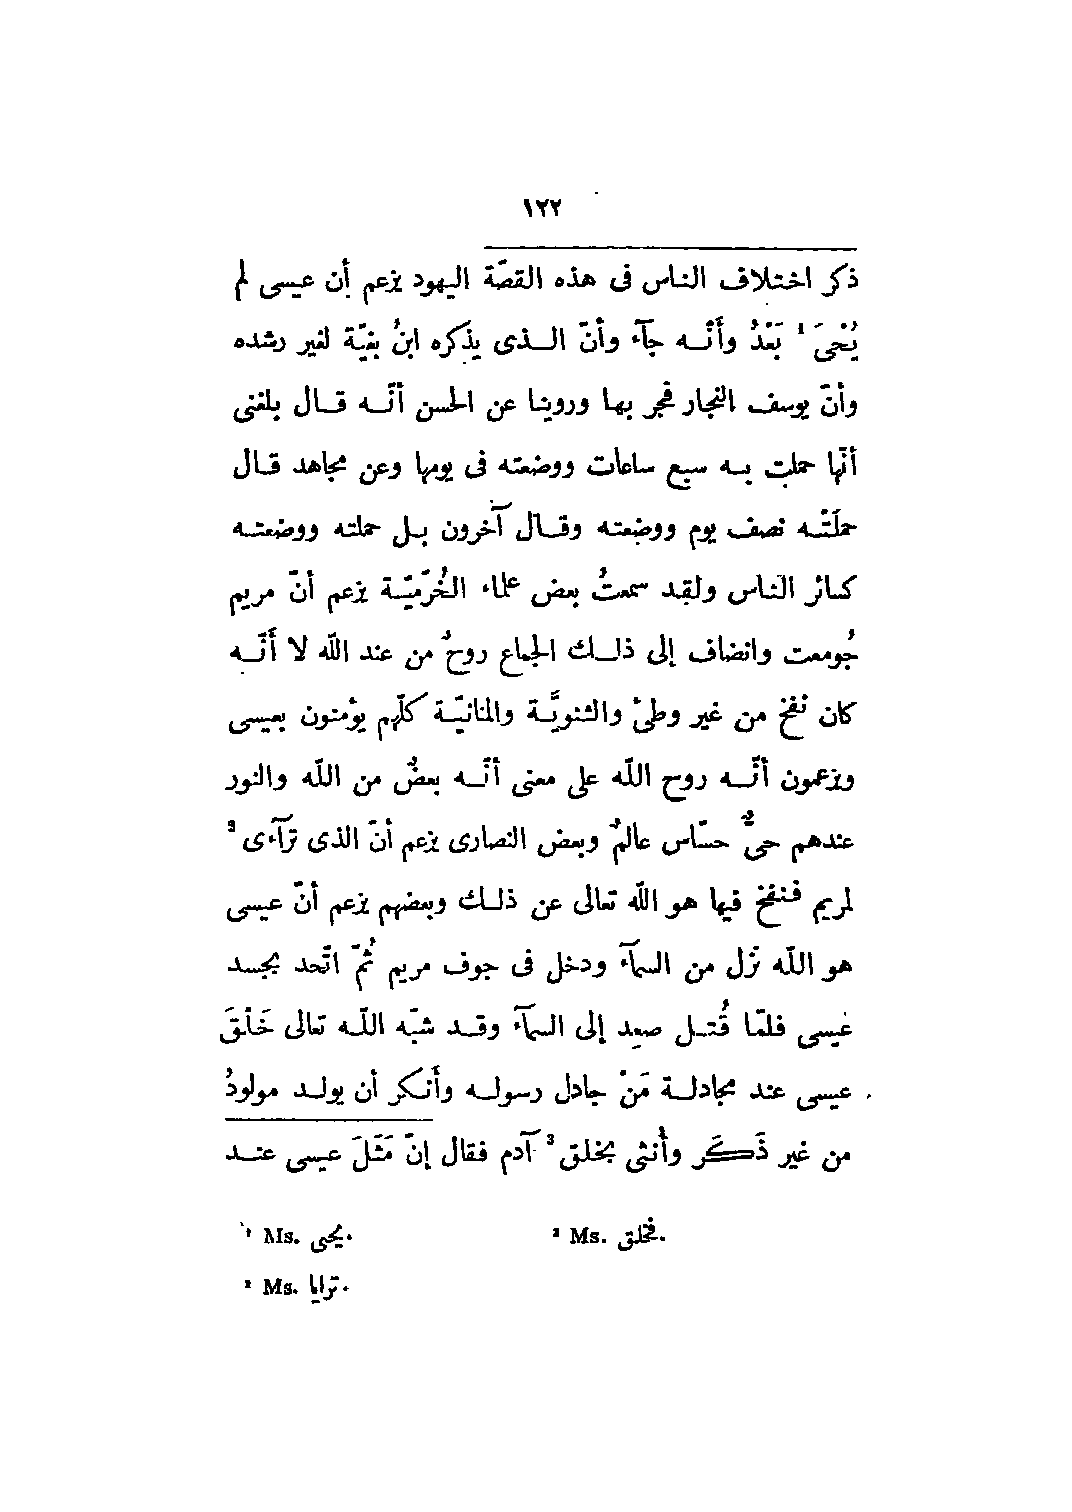 ١٢٢
ذكر اختلاف الناس فى هذه القصّة اليهود يزعم أن عيسى لم
يُحْىَ ¹ بَعْدُ وأَنّه جآء وأنّ الذى يذكره ابنُ بغيّة لغير رشده
وأنّ يوسف النجار فجر بها وروينا عن الحسن أنّه قال بلغنى
أنّها حملت به سبع ساعات ووضعته فى يومها وعن مجاهد قال
حملَتْه نصف يوم ووضعته وقال آخرون بل حملته ووضعته
كسائر الناس ولقد سمعتُ بعض علماء الخُرّميّة يزعم أنّ مريم
جُومعت وانضاف إلى ذلك الجماع روحٌ من عند الله لا أَنّه
كان نُفْخ من غير وطئ والثنويَّة والمنانيّة كلّهم يؤمنون بعيسى
ويزعمون أنّه روح الله على معنى أنّه بعضٌ من الله والنور
عندهم حىٌّ حسّاس عالمٌ وبعض النصارى يزعم أنّ الذى ترآءى ²
لمريم فنفخ فيها هو الله تعالى عن ذلك وبعضهم يزعم أنّ عيسى
هو الله نزل من السمآء ودخل فى جوف مريم ثُمّ اتّحد بجسد
عيسى فلمّا قُتل صعد إلى السمآء وقد شبّه الله تعالى خَلْقَ
عيسى عند مجادلة مَنْ جادل رسوله وأَنكر أن يولد مولودُ
من غير ذَكَر وأُنثى بخلق ³ آدم فقال إنّ مَثَلَ عيسى عند
¹ Ms. يحيى.
³ Ms. فخلق.
² Ms. ترايا.